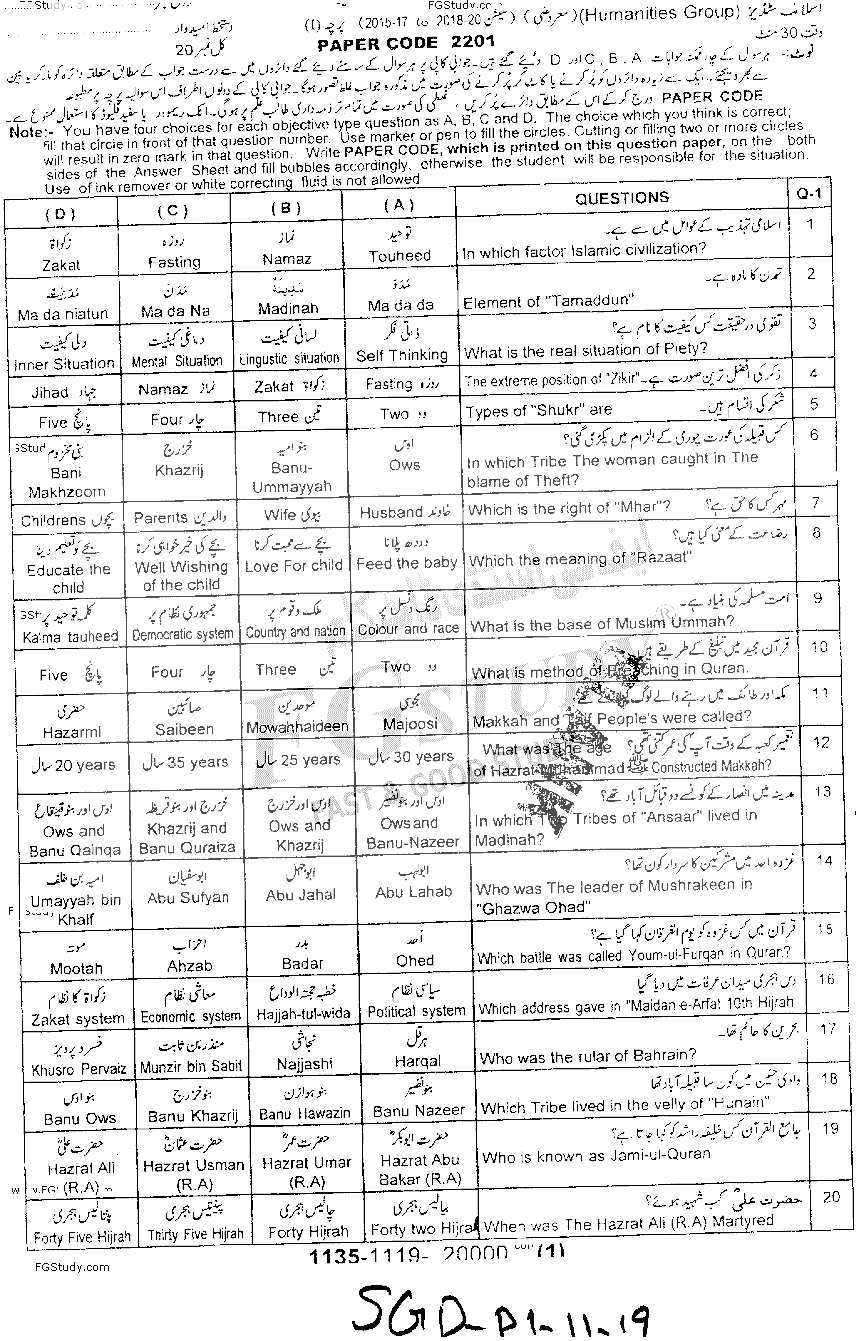 FGStudy.com
اسلامک سٹڈیز (Humanities Group) (معروضی) (سیشن 20-2018 to 17-2015) پرچہ (I) دستخط امیدوار
وقت 30 منٹ PAPER CODE 2201 کل نمبر 20
نوٹ:- ہر سوال کے چار ممکنہ جوابات A ، B ، C اور D دیئے گئے ہیں۔ جوابی کاپی پر ہر سوال کے سامنے دیئے گئے دائروں میں سے درست جواب کے مطابق متعلقہ دائرہ کو مارکر یا پین
سے بھر دیجئے۔ ایک سے زیادہ دائروں کو پُر کرنے یا کاٹ کر پُر کرنے کی صورت میں مذکورہ جواب غلط تصور ہوگا۔ جوابی کاپی کے دونوں اطراف اس سوالیہ پرچہ پر مطبوعہ
PAPER CODE درج کر کے اس کے مطابق دائرے پُر کریں، غلطی کی صورت میں تمام تر ذمہ داری طالب علم پر ہوگی۔ انک ریموور یا سفید فلیوڈ کا استعمال ممنوع ہے۔
Note:- You have four choices for each objective type question as A, B, C and D. The choice which you think is correct;
fill that circle in front of that question number. Use marker or pen to fill the circles. Cutting or filling two or more circles
will result in zero mark in that question. Write PAPER CODE, which is printed on this question paper, on the both
sides of the Answer Sheet and fill bubbles accordingly, otherwise the student will be responsible for the situation.
Use of ink remover or white correcting fluid is not allowed
(D) (C) (B) (A) QUESTIONS Q-1
زکوٰۃ روزہ نماز توحید اسلامی تہذیب کے عوامل میں سے ہے۔ 1
Zakat Fasting Namaz Touheed In which factor Islamic civilization?
مَدَنِیَّت مَدَنَ مَدِیْنَۃ مَدَدَ تمدن کا مادہ ہے۔ 2
Ma da niatun Ma da Na Madinah Ma da da Element of "Tamaddun"
دلی کیفیت دماغی کیفیت لسانی کیفیت ذاتی فکر تقویٰ درحقیقت کس کیفیت کا نام ہے؟ 3
Inner Situation Mental Situation Lingustic situation Self Thinking What is the real situation of Piety?
Jihad جہاد Namaz نماز Zakat زکوٰۃ Fasting روزہ The extreme position of "Zikir" ذکر کی افضل ترین صورت ہے۔ 4
Five پانچ Four چار Three تین Two دو Types of "Shukr" are شکر کی اقسام ہیں۔ 5
بنی مخزوم خزرج بنو امیہ اوس کس قبیلہ کی عورت چوری کے الزام میں پکڑی گئی؟ 6
Bani Khazrij Banu- Ows In which Tribe The woman caught in The
Makhzoom Ummayyah blame of Theft?
Childrens بچوں Parents والدین Wife بیوی Husband خاوند Which is the right of "Mhar"? مہر کس کا حق ہے؟ 7
بچے کو تعلیم دینا بچے کی خیر خواہی کرنا بچے سے محبت کرنا دودھ پلانا رضاعت کے معنی کیا ہیں؟ 8
Educate the Well Wishing Love For child Feed the baby Which the meaning of "Razaat"
child of the child
کلمہ توحید پر جمہوری نظام پر ملک و قوم پر رنگ و نسل پر امت مسلمہ کی بنیاد ہے۔ 9
Kalma tauheed Democratic system Country and nation Colour and race What is the base of Muslim Ummah?
Five پانچ Four چار Three تین Two دو قرآن مجید میں تبلیغ کے طریقے ہیں 10
What is method of Preaching in Quran.
حضرمی صائبین موحدین مجوسی مکہ اور طائف میں رہنے والے لوگ 11
Hazarmi Saibeen Mowahhaideen Majoosi Makkah and Taif People's were called?
20 years سال 35 years سال 25 years سال 30 years سال What was The age تعمیر کعبہ کے وقت آپ کی عمر کتنی تھی؟ 12
of Hazrat Muhammad ﷺ Constructed Makkah?
اوس اور بنو قینقاع خزرج اور بنو قریظہ اوس اور خزرج اوس اور بنو نضیر مدینہ میں انصار کے کونسے دو قبائل آباد تھے؟ 13
Ows and Khazrij and Ows and Ows and In which Two Tribes of "Ansaar" lived in
Banu Qainqa Banu Quraiza Khazrij Banu-Nazeer Madinah?
امیہ بن خلف ابوسفیان ابوجہل ابولہب غزوہ احد میں مشرکین کا سردار کون تھا؟ 14
Umayyah bin Abu Sufyan Abu Jahal Abu Lahab Who was The leader of Mushrakeen in
Khalf "Ghazwa Ohad"
موتہ احزاب بدر اُحد قرآن میں کس غزوہ کو یوم الفرقان کہا گیا ہے؟ 15
Mootah Ahzab Badar Ohed Which battle was called Youm-ul-Furqan in Quran?
زکوٰۃ کا نظام معاشی نظام خطبہ حجۃ الوداع سیاسی نظام دس ہجری میدان عرفات میں دیا گیا 16
Zakat system Economic system Hajjah-tul-wida Political system Which address gave in "Maidan-e-Arfat 10th Hijrah
خسرو پرویز منذر بن ثابت نجاشی ہرقل بحرین کا حاکم تھا۔ 17
Khusro Pervaiz Munzir bin Sabit Najjashi Harqal Who was the rular of Bahrain?
بنو اوس بنو خزرج بنو ہوازن بنو نضیر وادی حنین میں کون سا قبیلہ آباد تھا 18
Banu Ows Banu Khazrij Banu Hawazin Banu Nazeer Which Tribe lived in the velly of "Hunain"
حضرت علیؓ حضرت عثمانؓ حضرت عمرؓ حضرت ابوبکرؓ جامع القرآن کس خلیفہ راشد کو کہا جاتا ہے؟ 19
Hazrat Ali Hazrat Usman Hazrat Umar Hazrat Abu Who is known as Jami-ul-Quran
(R.A) (R.A) (R.A) Bakar (R.A)
پنتالیس ہجری پینتیس ہجری چالیس ہجری بیالیس ہجری حضرت علیؓ کب شہید ہوئے؟ 20
Forty Five Hijrah Thirty Five Hijrah Forty Hijrah Forty two Hijrah When was The Hazrat Ali (R.A) Martyred
1135-1119- 20000 (1)
FGStudy.com
SGD-P1-11-19
ایف جی اسٹڈی ڈاٹ کام
FG STUDY ®
FAST & GOOD STUDY